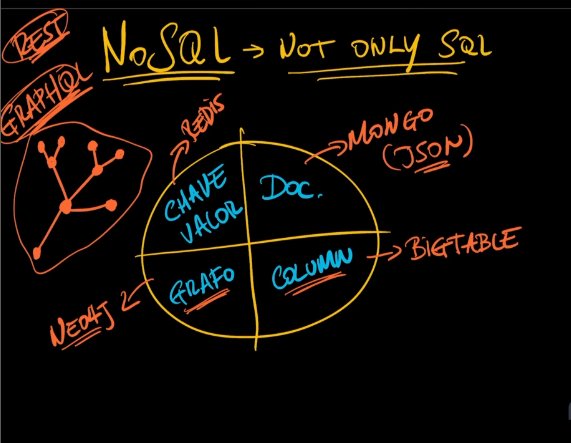 REST
NoSQL → NOT ONLY SQL
GRAPHQL
REDIS
MONGO
(JSON)
CHAVE
VALOR
DOC.
GRAFO
COLUMN
BIGTABLE
NEO4J